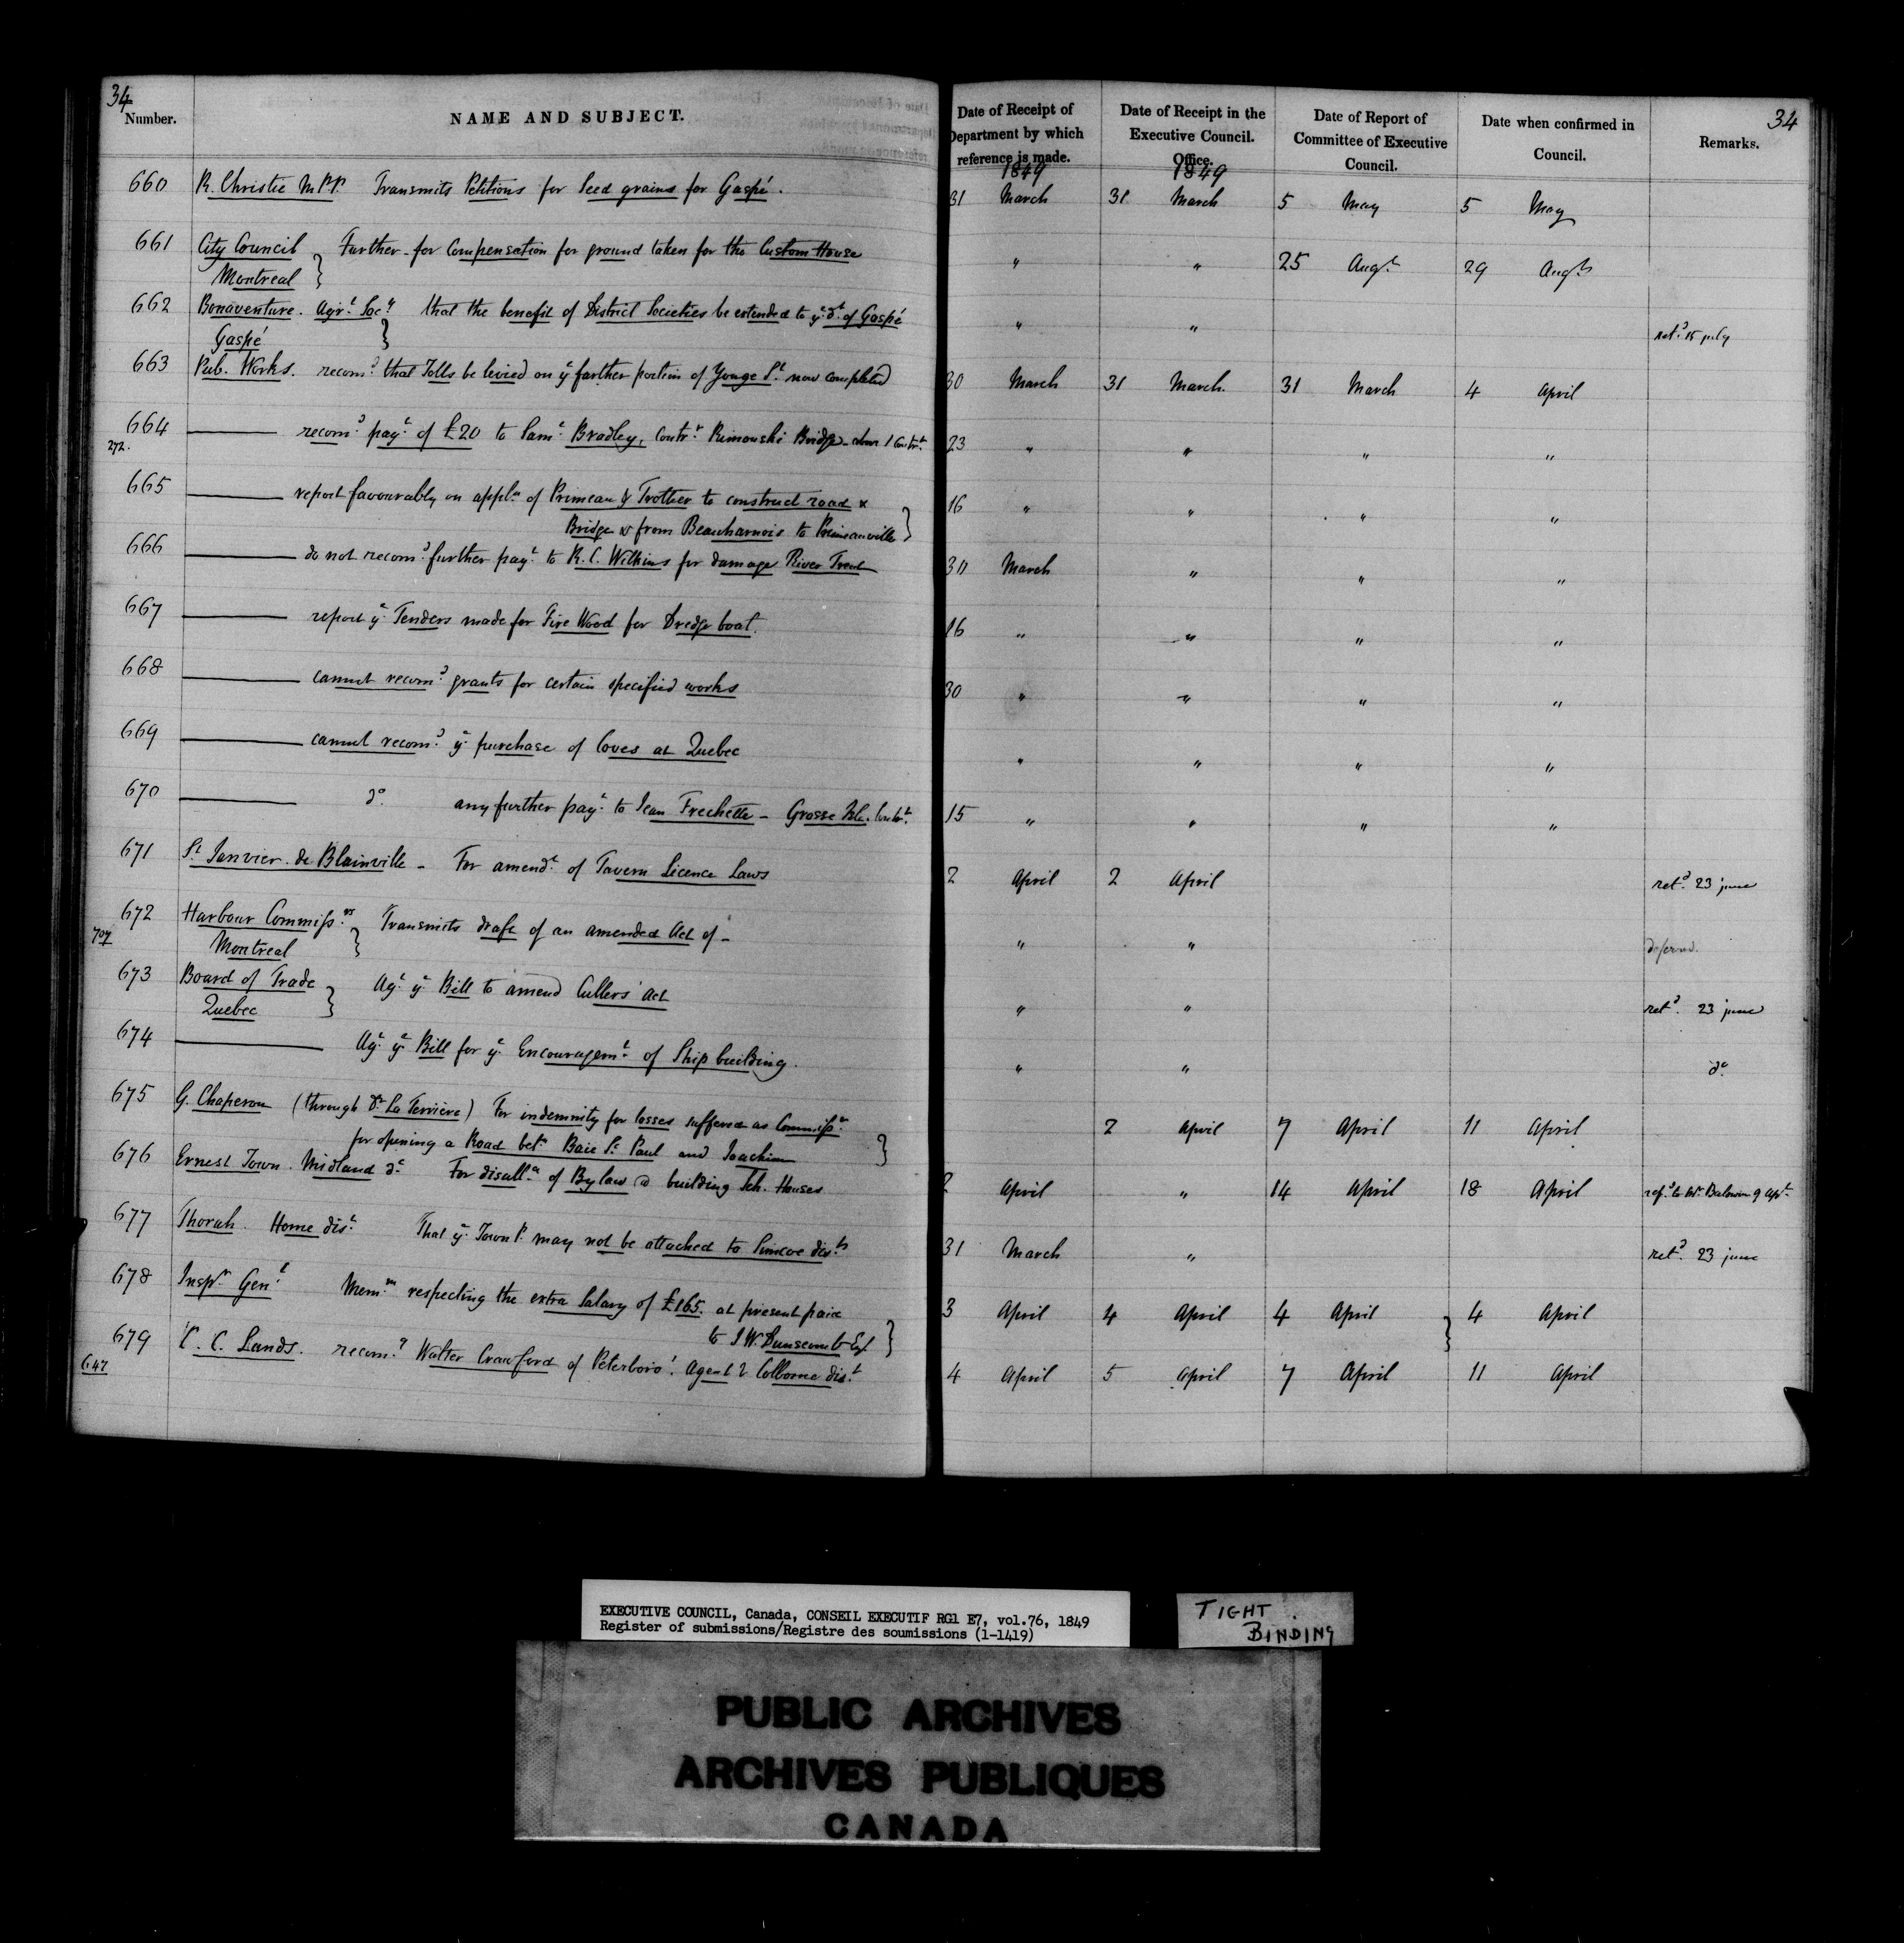 34
Number. NAME AND SUBJECT. Date of Receipt of Department by which reference is made. Date of Receipt in the Executive Council. Office. Date of Report of Committee of Executive Council. Date when confirmed in Council. Remarks. 34
1849 1849
660 R. Christie M.P.P. Transmits Petitions for Seed grains for Gaspé. 31 March 31 March 5 May 5 May
661 City Council Montreal } Further for Compensation for ground taken for the Custom House " " 25 Augt 29 Augt
662 Bonaventure. Agrl. Socy Gaspé } that the benefit of District Societies be extended to ye dt of Gaspé " " retd 15 july
663 Pub. Works. recomd that Tolls be levied on ye further portion of Yonge St now completed 30 March 31 March. 31 March 4 April
664 ——— recomd payt of £20 to Saml Bradley, Contr Rimouski Bridge 23 " " " "
272.
665 ——— report favourably on appln of Primeau & Trotter to construct road &
Bridge from Beauharnois to Primeauville } 16 " " " "
666 ——— do not recomd further payt to R. C. Wilkins for damage River Trent 30 March " " "
667 ——— report ye Tenders made for Fire Wood for Dredge boat. 16 " " " "
668 ——— cannot recomd grants for certain specified works 30 " " " "
669 ——— cannot recomd ye purchase of Coves at Quebec " " " "
670 ——— do any further payt to Jean Frechette - Grosse Isle. Contrt. 15 " " " "
671 St Janvier de Blainville - For amendt of Tavern Licence Laws 2 April 2 April retd 23 june
672 Harbour Commissrs Montreal } Transmits draft of an amended Act of - " " deferred.
707
673 Board of Trade Quebec } Agt ye Bill to amend Cullers' Act " " retd 23 june
674 ——— Agt ye Bill for ye Encouragemt of Ship building. " " do
675 G. Chaperon (through Dr La Terrière) For indemnity for losses suffered as Commissr
for opening a Road betn Baie St Paul and Joachim } 2 April 7 April 11 April
676 Ernest Town. Midland dt For disalln of Bylaw @ building Sch. Houses 2 April " 14 April 18 April refd to Mr Baldwin 9 Aprl.
677 Thorah. Home dist. That ye Townp. may not be attached to Simcoe dist. 31 March " retd 23 june
678 Inspr Genl Memm respecting the extra Salary of £165. at present paid
to J. W. Dunscomb Esq } 3 April 4 April 4 April } 4 April
679 C. C. Lands. recomd Walter Crawford of Peterboro'. Agent Colborne dist 4 April 5 April 7 April 11 April
647
EXECUTIVE COUNCIL, Canada, CONSEIL EXECUTIF RG1 E7, vol.76, 1849
Register of submissions/Registre des soumissions (1-1419)
TIGHT BINDING
PUBLIC ARCHIVES
ARCHIVES PUBLIQUES
CANADA